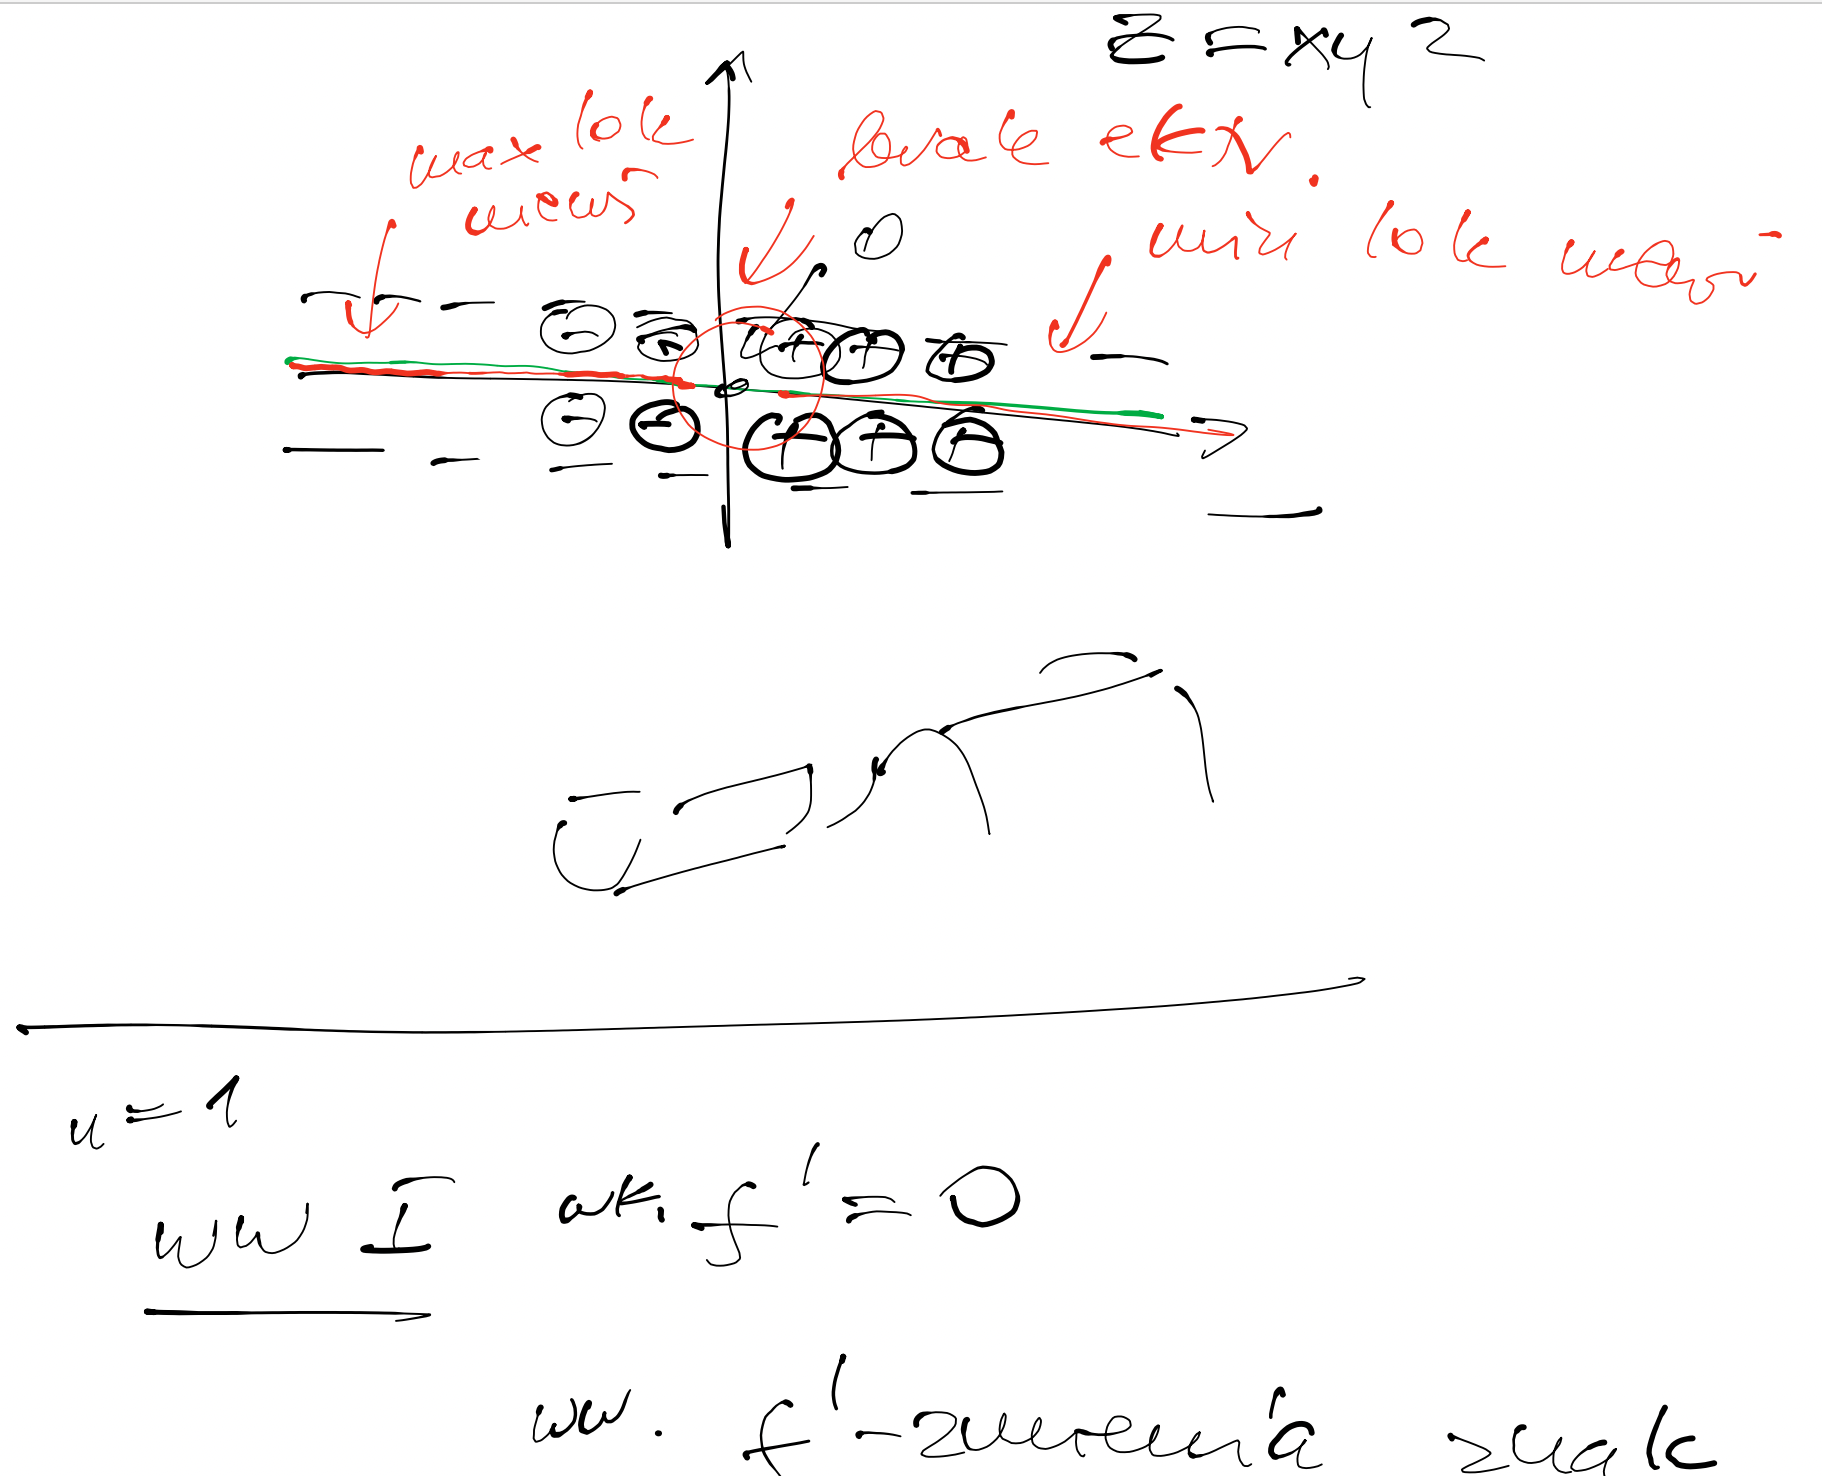 z = xy2
max lok
brak ekstr.
min lok
0
n = 1
WW I wk. f' = 0
ww. f' - zmienia znak